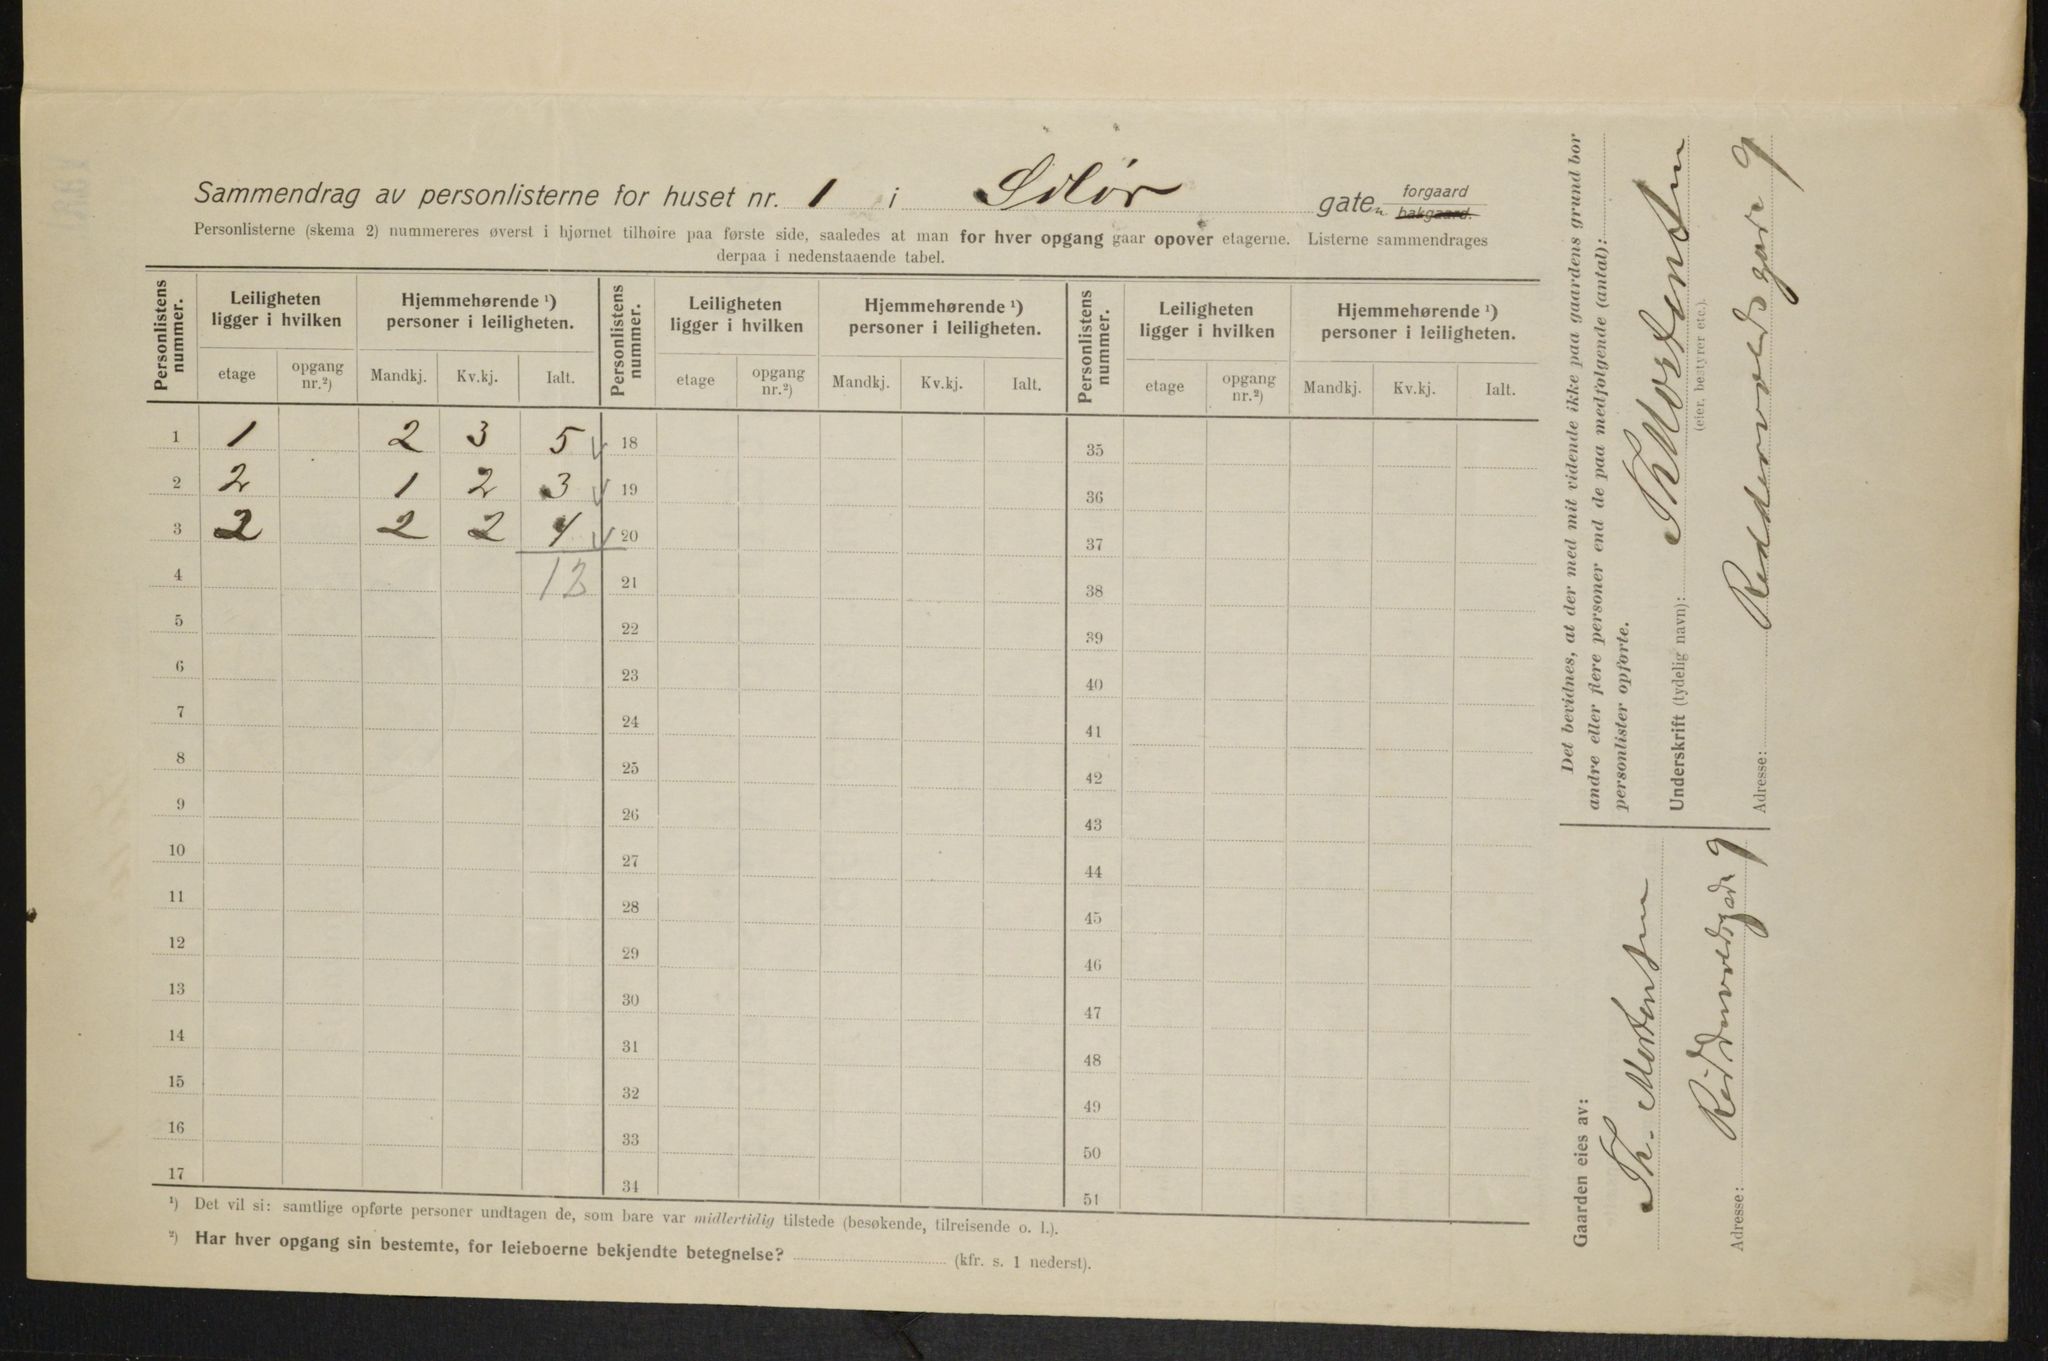 Sammendrag av personlisterne for huset nr. 1 i Solør gaten forgaard bakgaard.
Personlisterne (skema 2) nummereres øverst i hjørnet tilhøire paa første side, saaledes at man for hver opgang gaar opover etagerne. Listerne sammendrages
derpaa i nedenstaaende tabel.
Personlistens nummer. Leiligheten ligger i hvilken Hjemmehørende ¹) personer i leiligheten. Personlistens nummer. Leiligheten ligger i hvilken Hjemmehørende ¹) personer i leiligheten. Personlistens nummer. Leiligheten ligger i hvilken Hjemmehørende ¹) personer i leiligheten.
etage opgang nr.²) Mandkj. Kv.kj. Ialt. etage opgang nr.²) Mandkj. Kv.kj. Ialt. etage opgang nr.²) Mandkj. Kv.kj. Ialt.
1 1 2 3 5 18 35
2 2 1 2 3 19 36
3 2 2 2 4 20 37
4 12 21 38
5 22 39
6 23 40
7 24 41
8 25 42
9 26 43
10 27 44
11 28 45
12 29 46
13 30 47
14 31 48
15 32 49
16 33 50
17 34 51
¹) Det vil si: samtlige opførte personer undtagen de, som bare var midlertidig tilstede (besøkende, tilreisende o. l.).
²) Har hver opgang sin bestemte, for leieboerne bekjendte betegnelse? (kfr. s. 1 nederst).
Det bevidnes, at der med mit vidende ikke paa gaardens grund bor
andre eller flere personer end de paa medfølgende (antal):
personlister opførte.
Underskrift (tydelig navn): Th Mortensen
(eier, bestyrer etc.).
Adresse: Reddervoldsgade 9
Gaarden eies av:
Th. Mortensen
Adresse: Reddervoldsgade 9